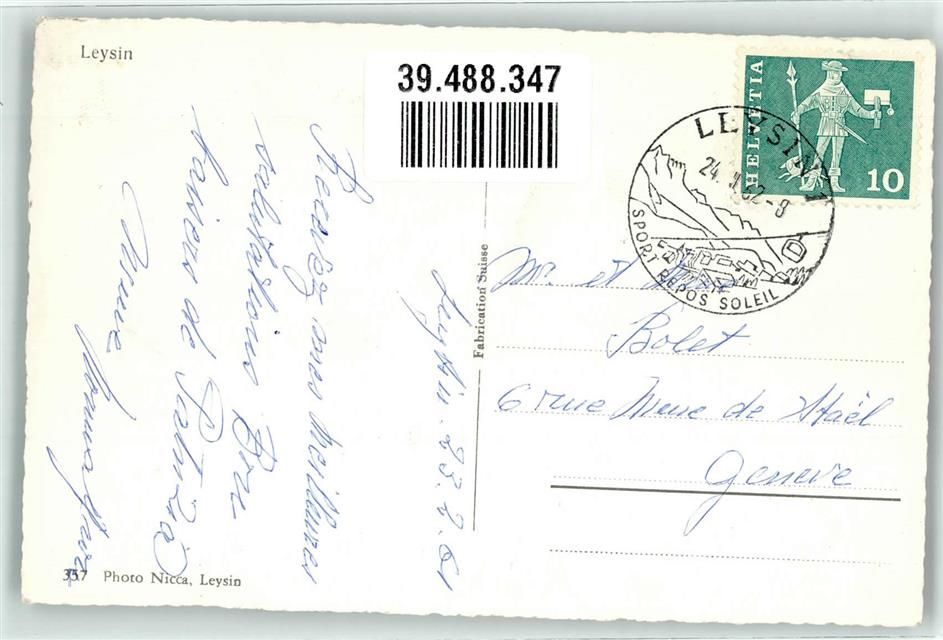 Leysin
39.488.347
HELVETIA
10
LEYSIN
24. 62-8
SPORT REPOS SOLEIL
Recevez mes meilleures
salutations Bon
baisers de
Leysin. 23.2.61
Fabrication Suisse
Mr. et Mme
Bolet
6 rue Mme de Staël
Geneve
357 Photo Nicca, Leysin